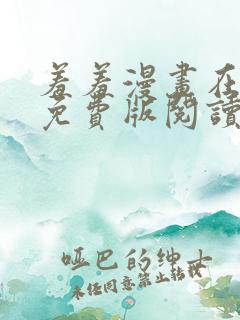 羞羞漫畫在
免費版閱讀
啞巴的紳士
未经同意禁止转载